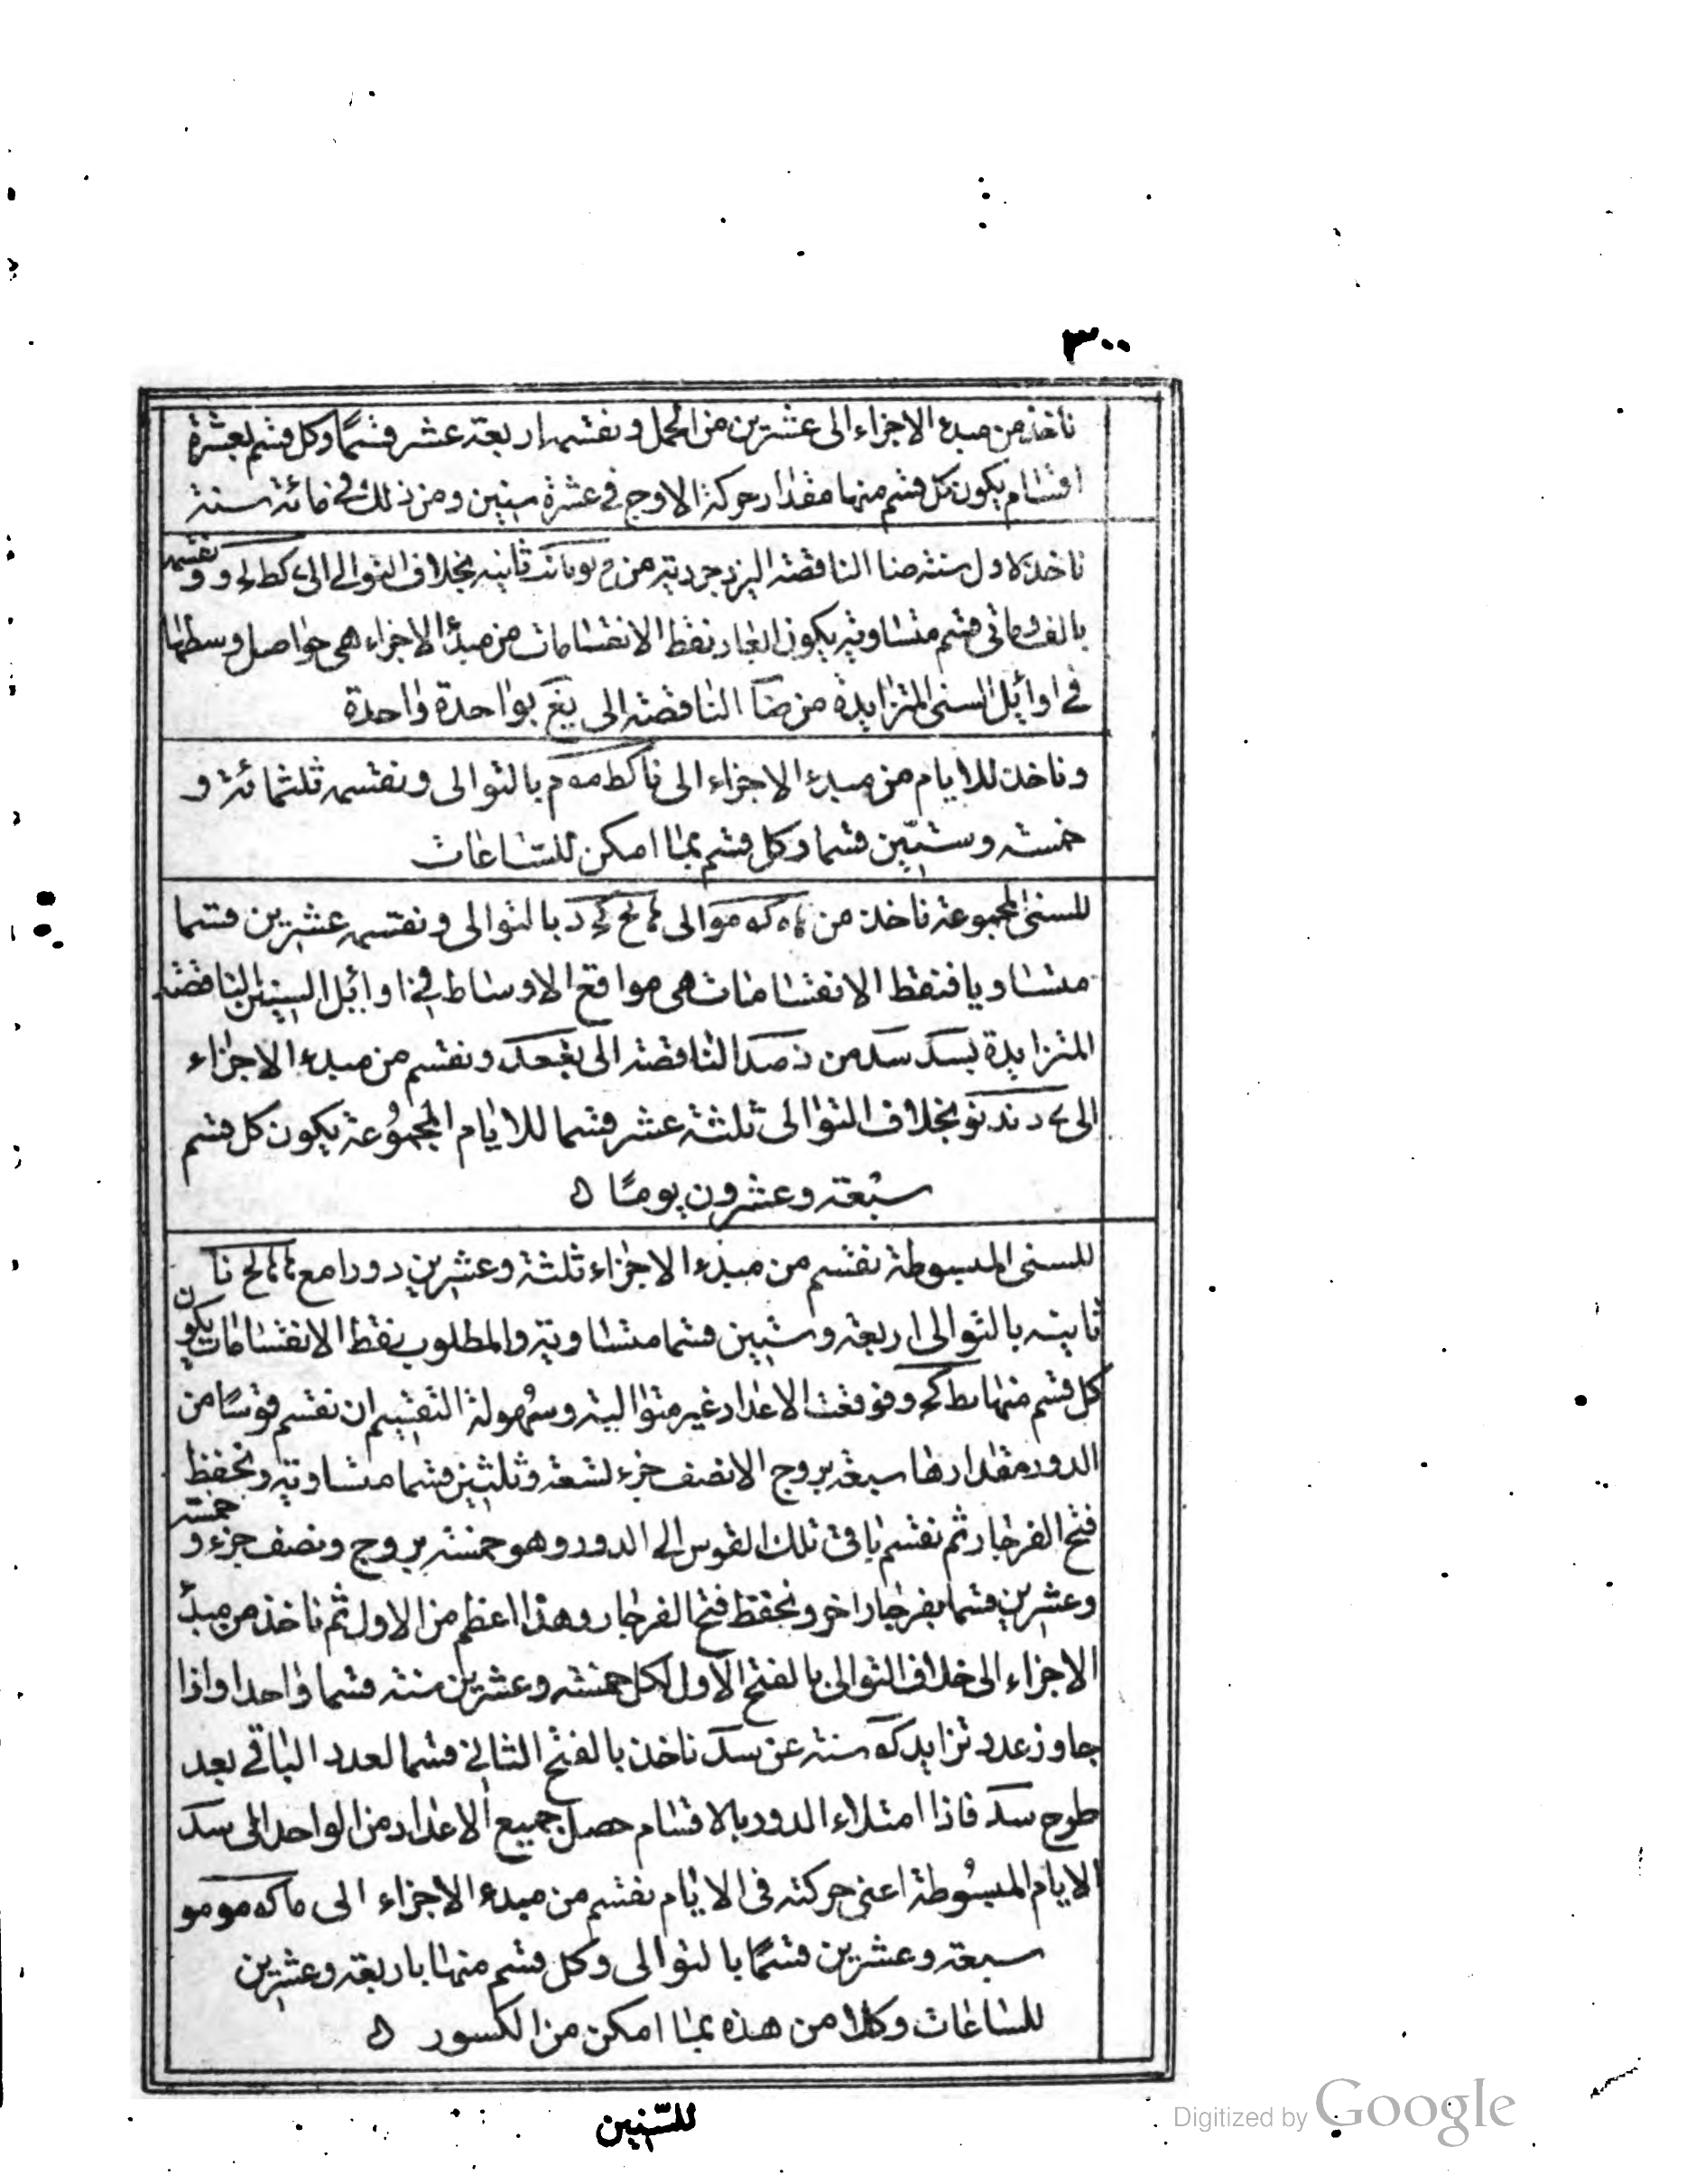 ٣٠٠
ناخذ من مبدء الاجزاء الى عشرين من الحمل ونقسمه اربعة عشر قسمًا وكل قسم بعشرة
اقسام يكون كل قسم منها مقدار حركة الاوج فى عشرة سنين ومن ذلك فى مائة سنة
ناخذ لاول سنة صنا الناقصة اليزدجردية من ثانيه بخلاف التوالى الى كط له و ونقسمه
بالف ومائى قسم متساوية يكون ابعاد نقط الانقسامات من مبدأ الاجزاء هى حواصل وسطها
فى اوائل السنى المتزايدة من صنا الناقصة الى بواحدة واحدة
وناخذ للايام من مبدء الاجزاء الى نا كط مه م بالتوالى ونقسمه ثلثمائة و
خمسة وستين قسما وكل قسم بما امكن للساعات
للسنى المجموعة ناخذ من كه مو الى لح د بالتوالى ونقسمه عشرين قسما
متساويا فنقط الانقسامات هى مواقع الاوساط فى اوائل السنين الناقصة
المتزايدة بسد سد من الناقصة الى ونقسم من مبدء الاجزاء
الى د ند نو بخلاف التوالى ثلثة عشر قسما للايام المجموعة يكون كل قسم
سبعة وعشرون يومًا ه
للسنى المبسوطة نقسم من مبدء الاجزاء ثلثة وعشرين دورا مع لح نا
ثانيه بالتوالى اربعة وستين قسما متساوية والمطلوب نقط الانقسامات يكون
كل قسم منها فوقعت الاعداد غير متوالية وسهولة التقسيم ان نقسم قوسًا من
الدور مقدارها سبعة بروج الا نصف جزء لتسعة وثلثين قسما متساوية ونحفظ
فتح الفرجار ثم نقسم باقى تلك القوس الى الدور وهو خمسة بروج ونصف جزء و خمسة
وعشرين قسما بفرجار اخر ونحفظ فتح الفرجار وهذا اعظم من الاول ثم ناخذ من مبدأ
الاجزاء الى خلاف التوالى بالفتح الاول لكل خمسة وعشرين سنة قسما واحدا واذا
جاوز عدد تزايد كه سنة عن سد ناخذ بالفتح الثانى قسما لعدد الباقى بعد
طرح سد فاذا امتلاء الدور بالاقسام حصل جميع الاعداد من الواحد الى سد
الايام المبسوطة اعنى حركته فى الايام نقسم من مبدء الاجزاء الى ما كه مو مو
سبعة وعشرين قسمًا بالتوالى وكل قسم منها باربعة وعشرين
للساعات وكلا من هذه بما امكن من الكسور ه
للسّنين
Digitized by Google